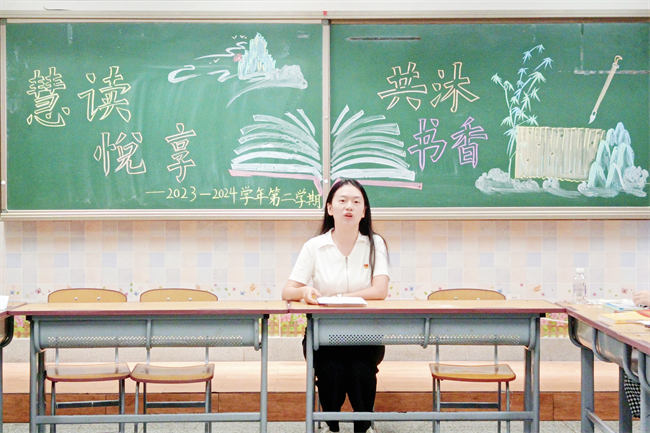 慧读
悦享
共沐
书香
——2023—2024学年第二学期